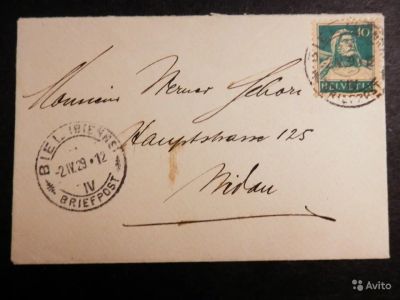 10
HELVETIA
Monsieur Werner Schori
Hauptstrasse 125
Nidau
BIEL (BIENNE)
-2.IV.29.12
IV
BRIEFPOST
Avito